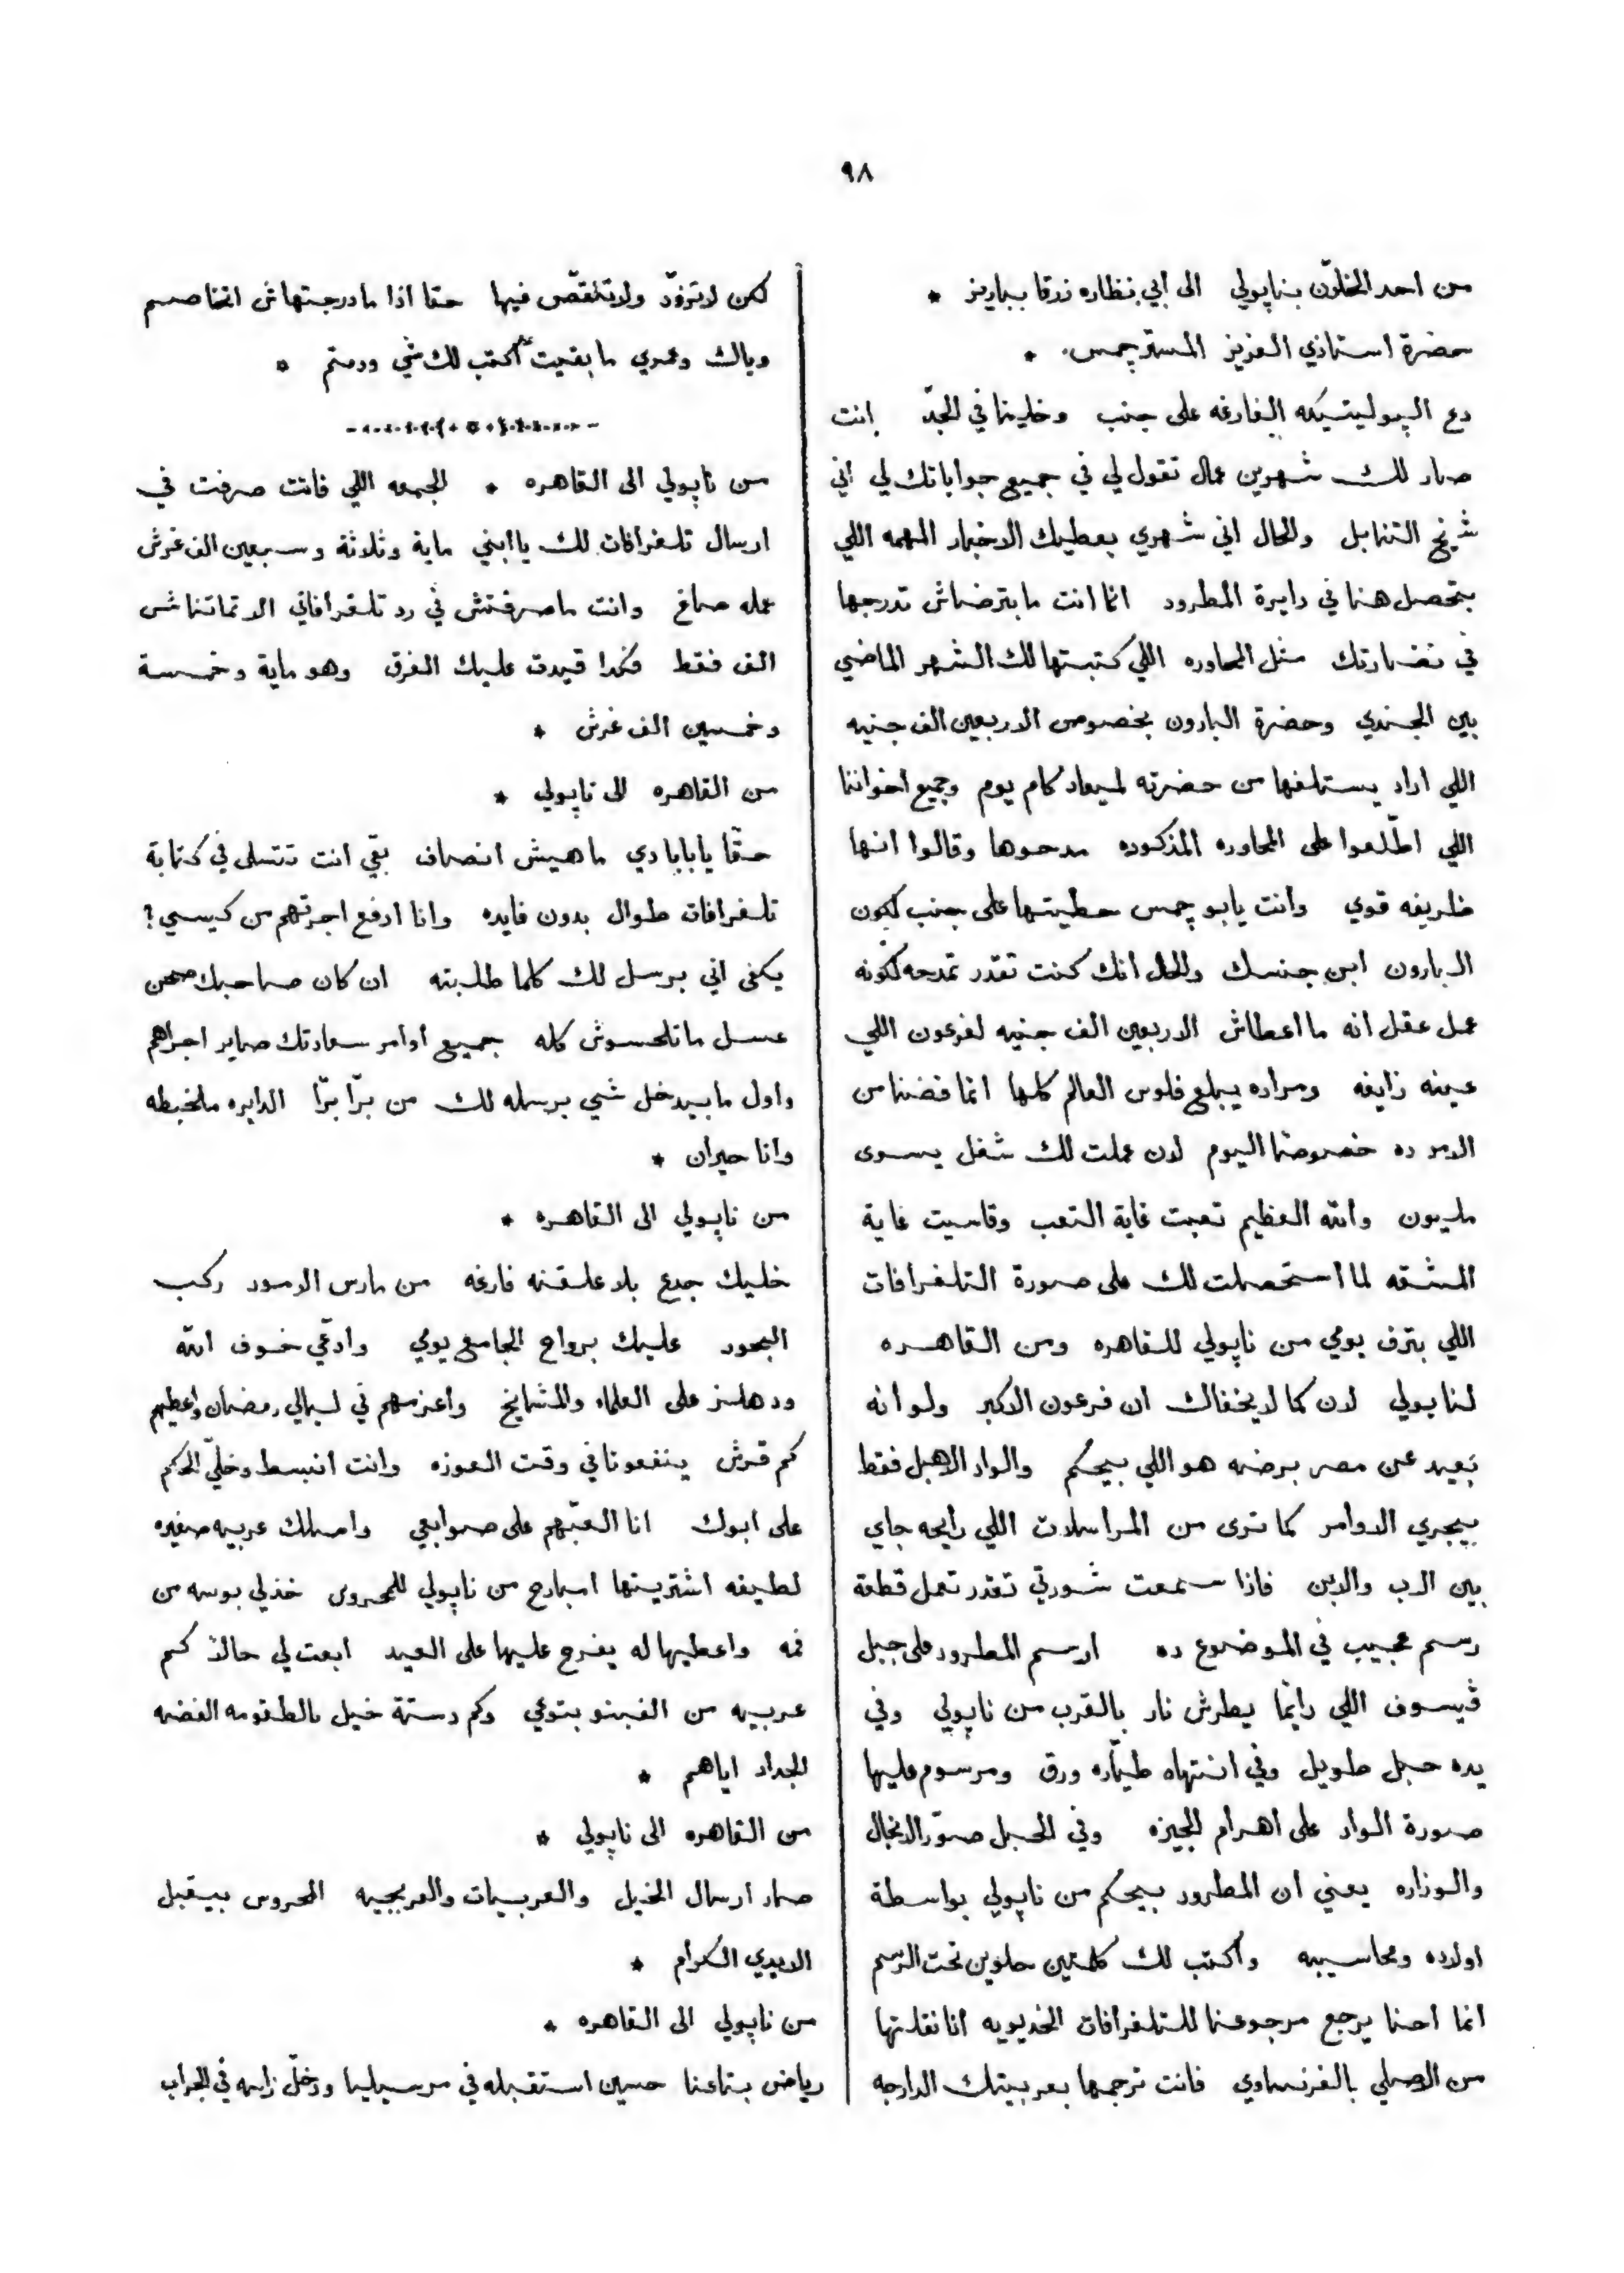 ٩٨
من احمد الخلوّن بناپولي الى ابي نظاره زرقا بباريز *
حضرة استاذي العزيز المستر چمس *
دع الپوليتيكه الفارغه على جنب وخلينا في الجدّ انت
صار لك شهرين عمال تقول لي في جميع جواباتك لي اني
شيخ التنابل والحال اني شهري بعطيك الاخبار المهمه اللي
بتحصل هنا في دايرة المطرود انما انت ما بترضاش تدرجها
في نضارتك مثل المحاوره اللي كتبتها لك الشهر الماضي
بين الجندي وحضرة البارون بخصوص الاربعين الف جنيه
اللي اراد يستلفها من حضرته لميعاد كام يوم وجميع اخواننا
اللي اطّلعوا على المحاوره المذكوره مدحوها وقالوا انها
ظريفه قوي وانت يابو چمس حطيتها على جنب لكون
البارون ابن جنسك والحال انك كنت تقدر تمدحه لكونه
عمل عقل انه ما اعطاش الاربعين الف جنيه لفرعون اللي
عينه زايغه ومراده يبلع فلوس العالم كلها انما فضنا من
الامر ده خصوصًا اليوم لان عملت لك شغل يسوى
مليون والله العظيم تعبت غاية التعب وقاسيت غاية
المشقه لما استحصلت لك على صورة التلغرافات
اللي بترف يومي من ناپولي للقاهره ومن القاهره
لناپولي لان كما لا يخفاك ان فرعون الاكبر ولو انه
بعيد عن مصر برضه هو اللي بيحكم والواد الاهبل فقط
بيجري الاوامر كما ترى من المراسلات اللي رايحه جاي
بين الاب والابن فاذا سمعت شورتي تقدر تعمل قطعة
رسم عجيب في الموضوع ده ارسم المطرود على جبل
ڤيسوف اللي دايمًا يطرش نار بالقرب من ناپولي وفي
يده حبل طويل وفي انتهاه طيّاره ورق ومرسوم عليها
صورة الواد على اهرام الجيزه وفي الحبل صوّر الانجال
والوزاره يعني ان المطرود بيحكم من ناپولي بواسطة
اولاده ومحاسيبه واكتب لك كلمتين حلوين تحت الرسم
انما احنا يرجع مرجوعنا للتلغرافات الخديويه انا نقلتها
من الاصلي بالفرنساوي فانت ترجمها بعربيتك الدارجه
لكن لا تزوّد ولا تنقّص فيها حقا اذا ما درجتهاش اتخاصم
وياك وعمري ما بقيت اكتب لك شي ودمتم *
من ناپولي الى القاهره * الجمعه اللي فاتت صرفت في
ارسال تلغرافات لك يا ابني ماية وثلاثة وسبعين الف غرش
عمله صاغ وانت ما صرفتش في رد تلغرافاتي الا تمانتاشر
الف فقط فكدا قيدت عليك الفرق وهو ماية وخمسة
وخمسين الف غرش *
من القاهره الى ناپولي *
حقّا يا بابا دي ماهيش انصاف بقى انت تتسلى في كتابة
تلغرافات طوال بدون فايده وانا ادفع اجرتهم من كيسي؟
يكفى اني برسل لك كلما طلبته ان كان صاحبك صحن
عسل ما تلحسوش كله جميع اوامر سعادتك صاير اجراهم
واول ما بيدخل شي برسله لك من برّا برّا الدايره ملخبطه
وانا حيران *
من ناپولي الى القاهره *
خليك جدع بلا علقنه فارغه من مارس الاسود ركب
البحور عليك برواح الجامع يومي وادّعي خوف الله
ودهلز على العلماء والمشايخ واعزمهم في ليالي رمضان واعطيهم
كم قرش ينفعونا في وقت العوزه وانت انبسط وخلّي الحكم
على ابوك انا العّبهم على صوابعي واصلك عربيه صغيره
لطيفه اشتريتها امبارح من ناپولي للمحروس خذلي بوسه من
فمه واعطيها له يفرح عليها على العيد ابعت لي حالاً كم
عربيه من الفبنو بتوعي وكم دستة خيل بالطقومه الفضه
الجداد اياهم *
من القاهره الى ناپولي *
صار ارسال الخيل والعربيات والعربجيه المحروس بيقبل
الايدي الكرام *
من ناپولي الى القاهره *
رياض بتاعنا حسين استقبله في مرسيليا ودخّل راسه في الجراب